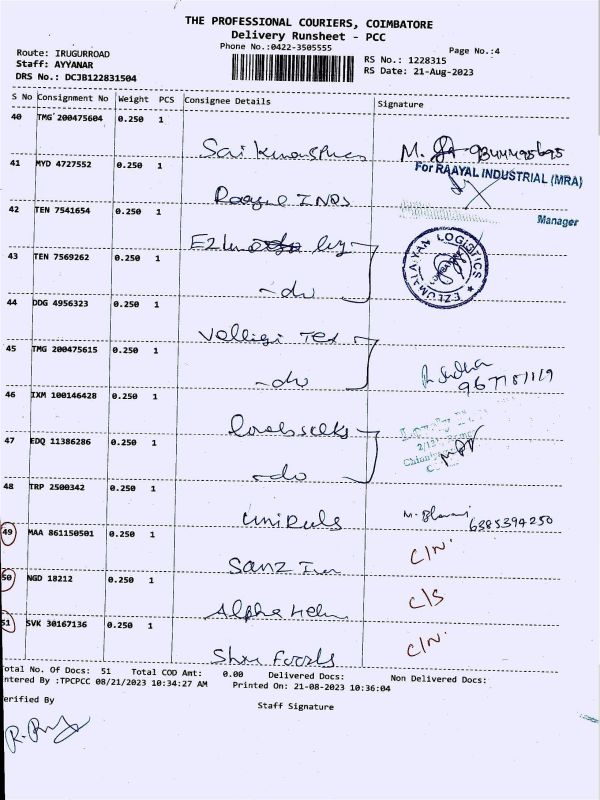 THE PROFESSIONAL COURIERS, COIMBATORE
Delivery Runsheet - PCC
Phone No.:0422-3505555
Page No.:4
Route: IRUGURROAD
Staff: AYYANAR
DRS No.: DCJB122831504
RS No.: 1228315
RS Date: 21-Aug-2023
S No Consignment No Weight PCS Consignee Details Signature
40 TMG 200475604 0.250 1
M.
For RAAYAL INDUSTRIAL (MRA)
41 MYD 4727552 0.250 1
Manager
42 TEN 7541654 0.250 1
EZHUMALAIYAN LOGISTICS
43 TEN 7569262 0.250 1
-do
44 DDG 4956323 0.250 1
Valligi Tex
45 TMG 200475615 0.250 1
-do
46 IXM 100146428 0.250 1
47 EDQ 11386286 0.250 1
-do
48 TRP 2500342 0.250 1
6385394250
49 MAA 861150501 0.250 1
C/N.
Sanz
50 NGD 18212 0.250 1
C/S
Alpha
51 SVK 30167136 0.250 1
C/N.
Foods
otal No. Of Docs: 51 Total COD Amt: 0.00 Delivered Docs: Non Delivered Docs:
ntered By :TPCPCC 08/21/2023 10:34:27 AM Printed On: 21-08-2023 10:36:04
erified By
Staff Signature